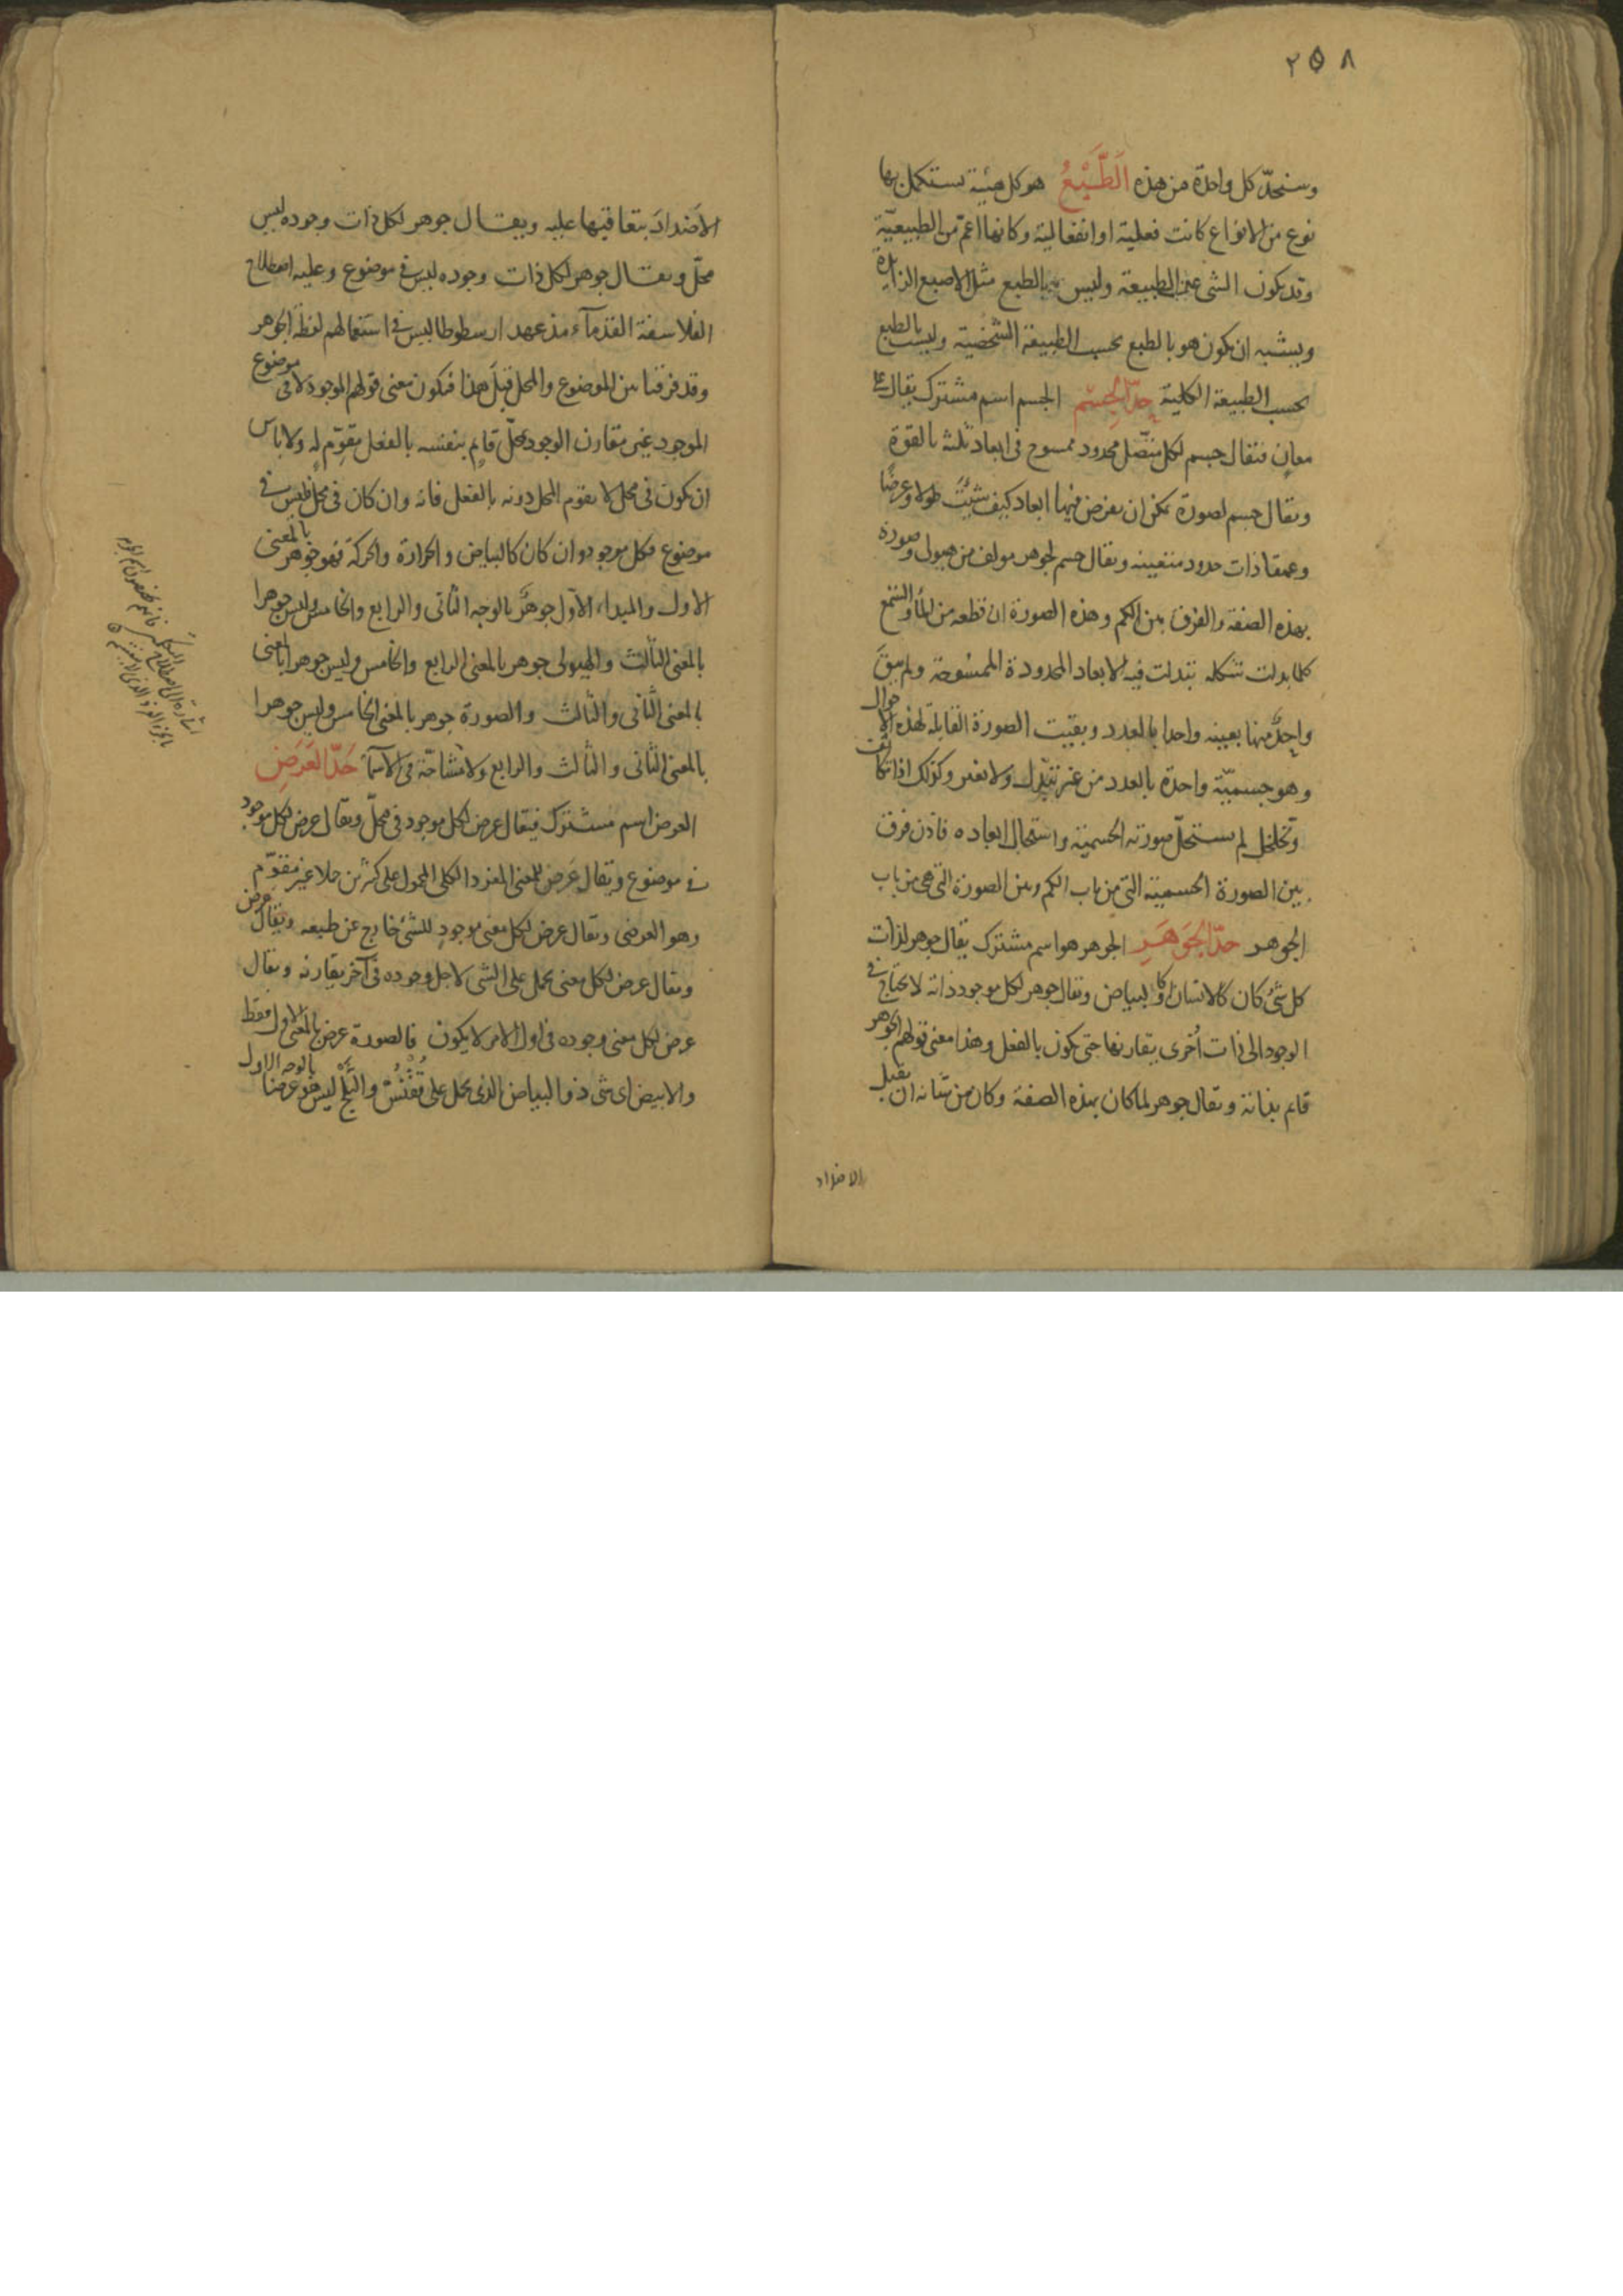 ٢٥٨
وسنحدّ كل واحدة من هذه اَلطَّبْعُ هو كل هيئة يستكمل بها
نوع من الانواع كانت فعلية او انفعالية وكانها اعمّ من الطبيعيّة
وقد يكون الشى عن الطبيعة وليس بالطبع مثل الاصبع الزايدة
ويشبه ان يكون هو بالطبع بحسب الطبيعة الشخصية وليست بالطبع
بحسب الطبيعة الكلية حدّ الجسم الجسم اسم مشترك يقال على
معانٍ فيقال جسم لكل متّصل محدود ممسوح فى ابعاد ثلثة بالقوة
ويقال جسم لصورة يمكن ان يفرض فيها ابعاد كيف شئت طولا وعرضًا
وعمقا ذات حدود متعينه ويقال جسم لجوهر مولف من هيولى وصورة
بهذه الصفة والفرق بين الكم وهذه الصورة ان قطعه من الماء او الشمع
كلما بدلت شكله تبدلت فيه الابعاد المحدودة الممسوحة ولم يبق
واحدٌ منها بعينه واحدا بالعدد وبقيت الصورة القابلة لهذه الاحوال
وهو جسميّة واحدة بالعدد من غير تبدّل ولا تغير وكذلك اذا تكاثف
وتخلخل لم يستحلّ صورته الجسمية واستحال ابعاده فاذن فرق
بين الصورة الجسمية التى من باب الكم وبين الصورة التى هى من باب
الجوهر حدّ الجَوهَرِ الجوهر هو اسم مشترك يقال جوهر لذات
كل شئ كان كالانسان او كالبياض ويقال جوهر لكل موجود ذاته لا يحتاج فى
الوجود الى ذات اُخرى يقارنها حتى يكون بالفعل وهذا معنى قولهم الجوهر
قايم بذاته ويقال جوهر لما كان بهذه الصفة وكان من شانه ان يقبل
الاضداد
الاَضدادَ بتعاقبها عليه ويقال جوهر لكل ذات وجوده ليس
محلّ ويقال جوهر لكل ذات وجوده ليس فى موضوع وعليه اصطلاح
الفلاسفة القدمآء مذ عهد ارسطوطاليس فى استعمالهم لفظة الجوهر
وقد فرقنا بين الموضوع والمحل قبلَ هذا فيكون معنى قولهم الموجود لا فى موضوع
الموجود غير مقارن الوجود لمحلّ قايم بنفسه بالفعل مقوّم له ولا باس
ان يكون فى محل لا يقوم المحل دونه بالفعل فانه وان كان فى محل فليس فى
موضوع فكل موجود وان كان كالبياض والحرارة والحركة فهو جوهر بالمعنى
الاول والمبداء الاول جوهرٌ بالوجه الثانى والرابع والخامس وليس جوهرا
بالمعنى الثالث والهيولى جوهر بالمعنى الرابع والخامس وليس جوهرا بالمعنى
بالمعنى الثانى والثالث والصورة جوهر بالمعنى الخامس وليس جوهرا
بالمعنى الثانى والثالث والرابع ولا مشاحّة فى الاسمآء حَدّ العَرَضِ
العرض اسم مشترك فيقال عرض لكل موجود فى محلّ ويقال عرض لكل موجود
فى موضوع ويقال عَرض للمعنى المفرد الكلى المحمول على كثيرين حملا غير مقوّم
وهو العرضى ويقال عرض لكل معنى موجودٍ للشئ خارج عن طبعه ويقال عرض
ويقال عرض لكل معنى يحمل على الشى لاجل وجوده فى آخر يقارنه ويقال
عرض لكل معنى وجوده فى اول الامر لا يكون فالصورة عرض بالمعنى الاول فقط
والابيض اى شى ذو البياض الذى يحمل على قُقْنُسْ والثَّلْج ليس هو عرضا بالوجه الاول